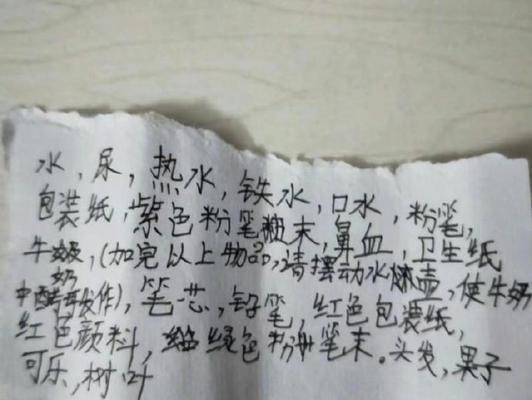 水，尿，热水，铁水，口水，粉笔，
包装纸，紫色粉笔粉末，鼻血，卫生纸
牛奶，(加完以上物品，请摆动水壶，使牛奶
中酵母发作)，笔芯，铅笔，红色包装纸，
红色颜料，绿色粉笔末。头发，果子
可乐，树叶